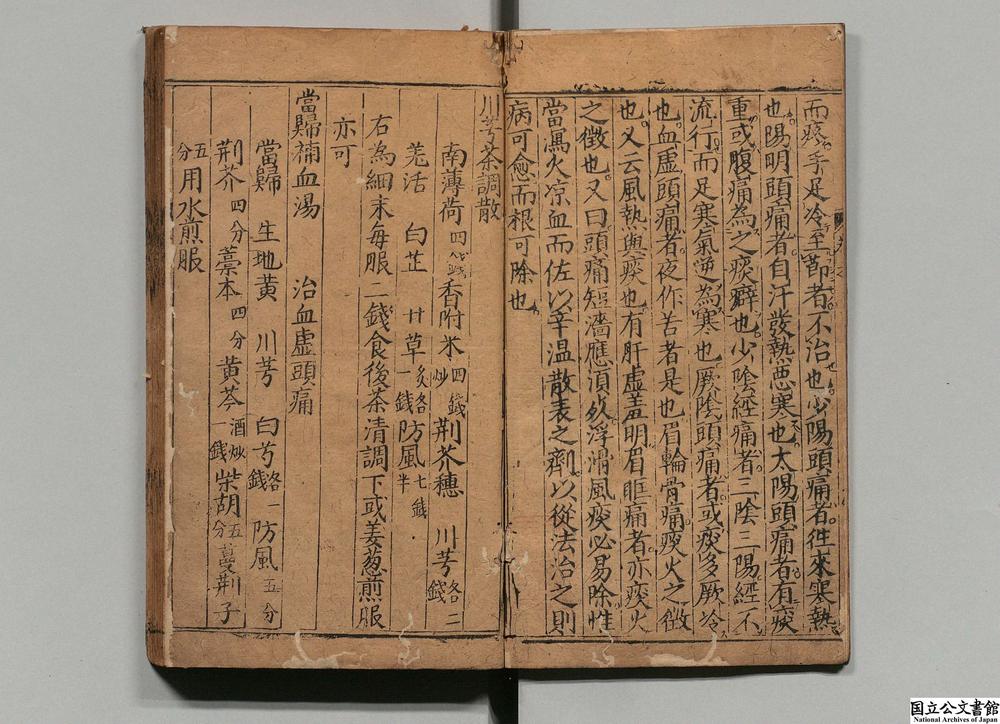 而疼手足冷至節者不治也少陽頭痛者徃來寒熱
也陽明頭痛者自汗發熱惡寒也太陽頭痛者有痰
重或腹痛為之痰癖也少陰經痛者三陰三陽經不
流行而足寒氣逆為寒也厥陰頭痛者或痰多厥冷
也血虛頭痛者夜作苦者是也眉輪骨痛痰火之徵
也又云風熱與痰也有肝虛羞明眉眶痛者亦痰火
之徵也又曰頭痛短濇應湏夊浮滑風痰必易除惟
當瀉火凉血而佐以辛温散表之劑以從法治之則
病可愈而根可除也
川芎茶調散
南薄荷四錢香附米四錢炒荆芥穗 川芎各二錢
羗活 白芷 甘草炙各一錢防風七錢半
右為細末每服二錢食後茶清調下或姜葱煎服
亦可
當歸補血湯 治血虛頭痛
當歸 生地黃 川芎 白芍各一錢防風五分
荆芥四分藁本四分黃芩酒炒一錢柴胡五分蔓荆子
五分用水煎服
国立公文書館
National Archives of Japan